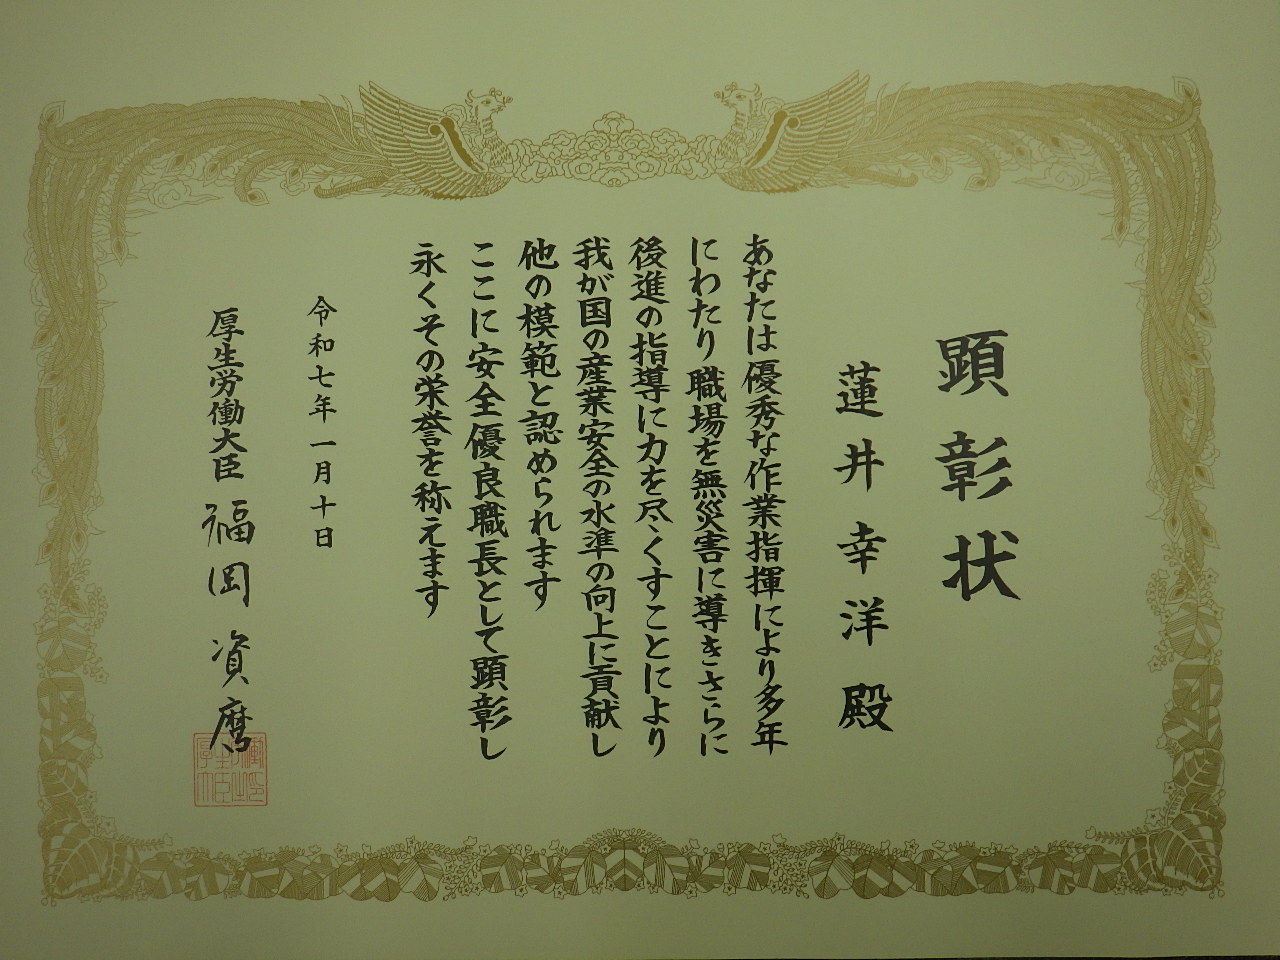 顕彰状
蓮井幸洋殿
あなたは優秀な作業指揮により多年
にわたり職場を無災害に導きさらに
後進の指導に力を尽くすことにより
我が国の産業安全の水準の向上に貢献し
他の模範と認められます
ここに安全優良職長として顕彰し
永くその栄誉を称えます
令和七年一月十日
厚生労働大臣 福岡資麿